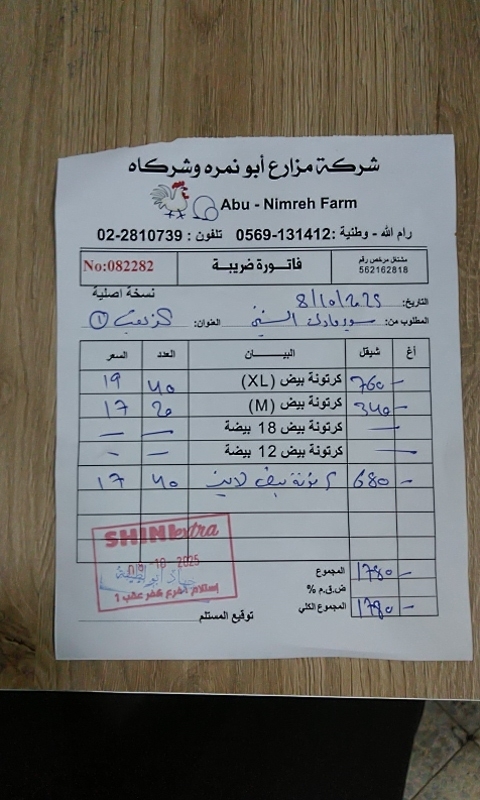 شركة مزارع أبو نمره وشركاه
Abu - Nimreh Farm
رام الله - وطنية : 0569-131412 تلفون : 02-2810739
No:082282 فاتورة ضريبة مشتغل مرخص رقم 562162818
نسخة اصلية
التاريخ: 8/10/2025
المطلوب من: سوبرماركت الشني العنوان: كفر عقب 1
أغ شيقل البيان العدد السعر
- 760 كرتونة بيض (XL) 40 19
- 340 كرتونة بيض (M) 20 17
كرتونة بيض 18 بيضة
كرتونة بيض 12 بيضة
- 680 كرتونة بيض لارج 40 17
SHINI extra
10 2025
إستلام / فرع كفر عقب 1
المجموع 1780 -
ض.ق.م %
المجموع الكلي 1780 -
توقيع المستلم